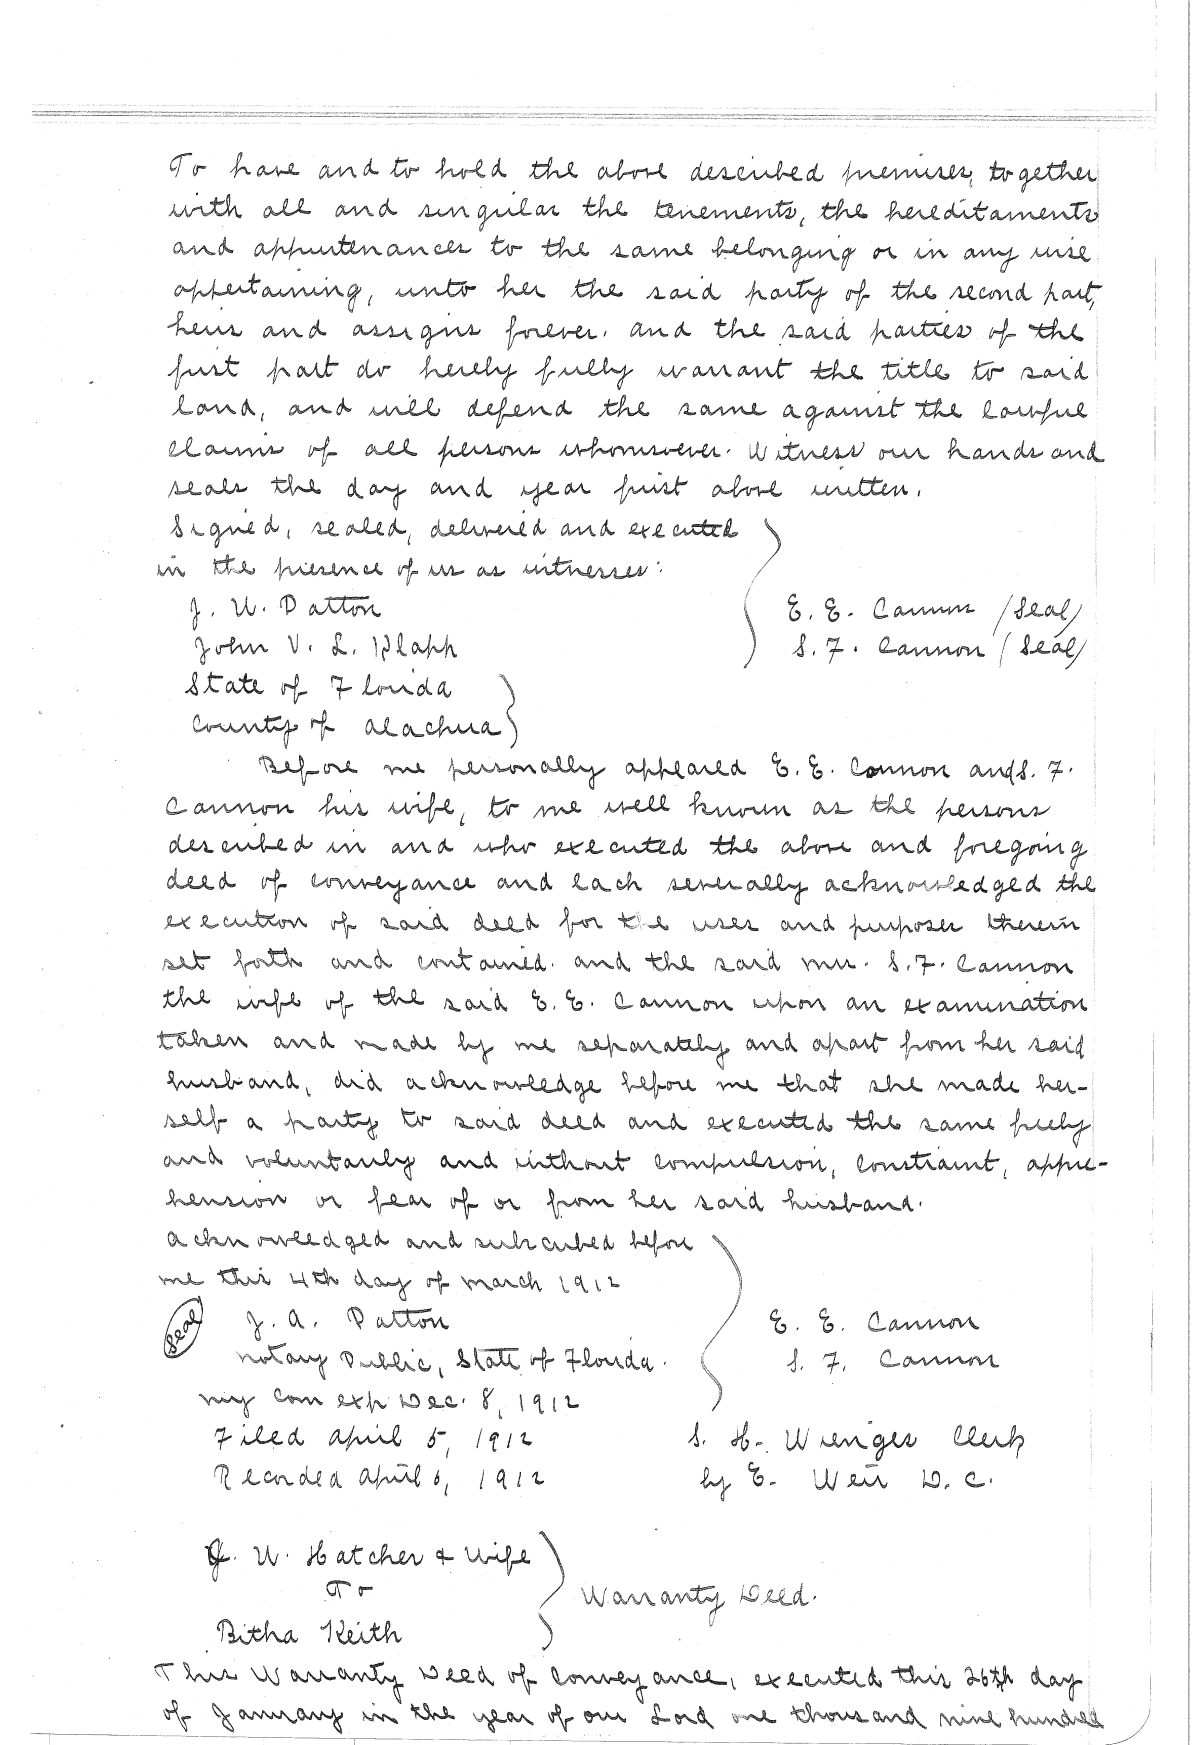 To have and to hold the above described premises, together
with all and singular the tenements, the hereditaments
and appurtenances to the same belonging or in any wise
appertaining, unto her the said party of the second part,
heirs and assigns forever. and the said parties of the
first part do hereby fully warrant the title to said
land, and will defend the same against the lawful
claims of all persons whomsoever. Witness our hands and
seals the day and year first above written.
Signed, sealed, delivered and executed
in the presence of us as witnesses:
J. W. Patton
E. E. Cannon (Seal)
John V. L.
S. F. Cannon (Seal)
State of Florida
County of Alachua
Before me personally appeared E. E. Cannon and S. F.
Cannon his wife, to me well known as the persons
described in and who executed the above and foregoing
deed of conveyance and each severally acknowledged the
execution of said deed for the uses and purposes therein
set forth and contained. and the said Mrs. S. F. Cannon
the wife of the said E. E. Cannon upon an examination
taken and made by me separately and apart from her said
husband, did acknowledge before me that she made her-
self a party to said deed and executed the same freely
and voluntarily and without compulsion, constraint, appre-
hension or fear of or from her said husband.
Acknowledged and subscribed before
me this 4th day of March 1912
Seal J. A. Patton
E. E. Cannon
Notary Public, State of Florida.
S. F. Cannon
my Com exp Dec. 8, 1912
Filed April 5, 1912
S. H. Wienges Clerk
Recorded April 6, 1912
by E. Weir D. C.
J. W. Hatcher & Wife
To
Warranty Deed.
Bitha Keith
This Warranty Deed of Conveyance, executed this 26th day
of January in the year of our Lord one thousand nine hundred